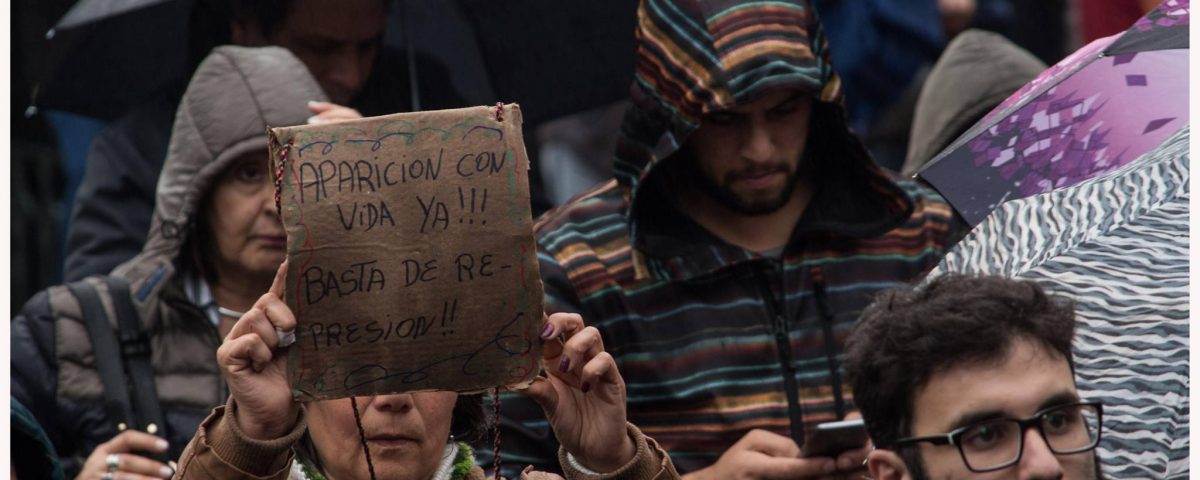 APARICION CON
VIDA YA!!!
BASTA DE RE-
PRESION!!